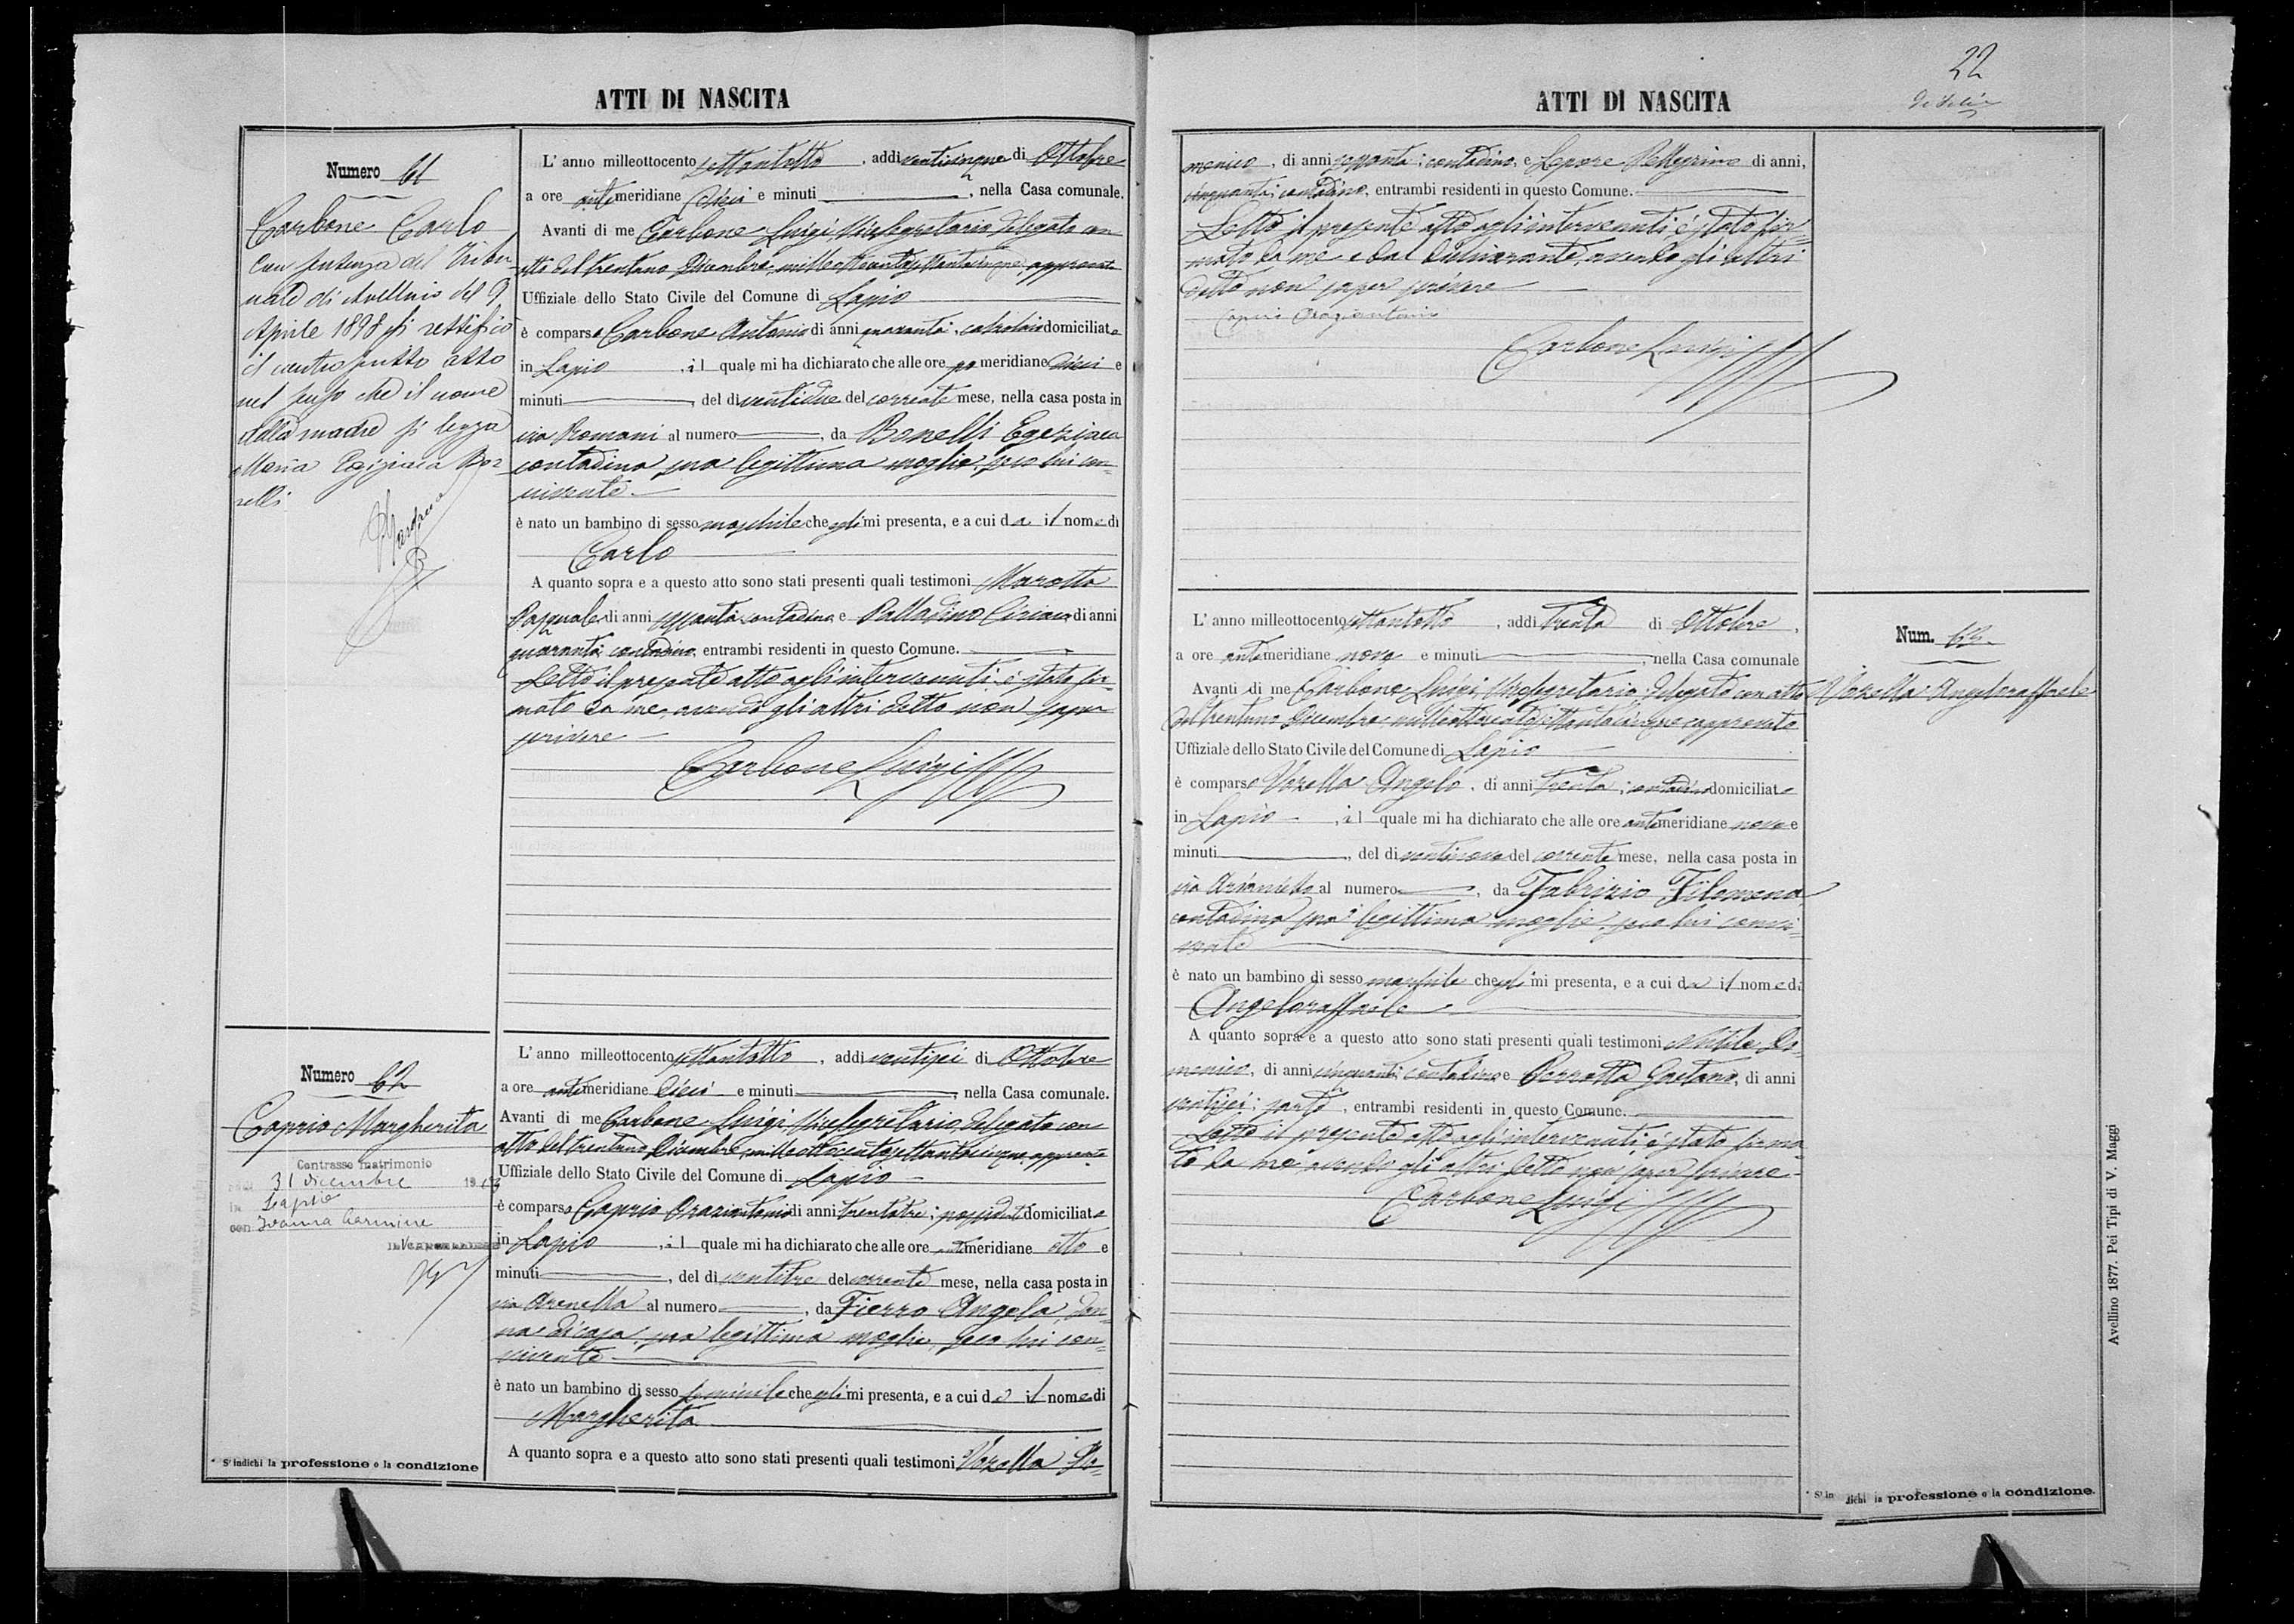 ATTI DI NASCITA
Numero 61
Carbone Carlo
Con sentenza del Tribu-
nale di Avellino del 9
Aprile 1898 si rettifica
il controscritto atto
nel senso che il nome
della madre si legga
Maria Egiziaca Bo-
nelli
L' anno milleottocento settantotto, addì venticinque di Ottobre
a ore antimeridiane dieci e minuti , nella Casa comunale.
Avanti di me Carbone Luigi Vicesegretario delegato con
atto del trentuno Dicembre milleottocentosettantacinque, approvato
Uffiziale dello Stato Civile del Comune di Lapio
è comparso Carbone Antonio di anni quaranta, calzolaio domiciliato
in Lapio , il quale mi ha dichiarato che alle ore pomeridiane dieci e
minuti , del dì ventidue del corrente mese, nella casa posta in
via Romani al numero , da Bonelli Egeziaca
contadina sua legittima moglie, seco lui con-
vivente
è nato un bambino di sesso maschile che egli mi presenta, e a cui dà il nome di
Carlo
A quanto sopra e a questo atto sono stati presenti quali testimoni Marotta
Pasquale di anni sessanta contadino e Palladino Ciriaco di anni
quaranta contadino, entrambi residenti in questo Comune.
Letto il presente atto agli intervenuti, è stato fir-
mato da me, avendo gli altri detto non saper
scrivere
Carbone Luigi
Numero 62
Caprio Margherita
Contrasse matrimonio
31 dicembre 19
in Lapio
con Ivanna Carmine
L' anno milleottocento settantotto, addì ventisei di Ottobre
a ore antimeridiane dieci e minuti , nella Casa comunale.
Avanti di me Carbone Luigi Vicesegretario delegato con
atto del trentuno Dicembre milleottocentosettantacinque, approvato
Uffiziale dello Stato Civile del Comune di Lapio
è comparso Caprio Oraziantonio di anni trentatre, possidente domiciliato
in Lapio , il quale mi ha dichiarato che alle ore antimeridiane otto e
minuti , del dì ventitre del corrente mese, nella casa posta in
via Arenella al numero , da Fierro Angela, don-
na di casa, sua legittima moglie, seco lui con-
vivente
è nato un bambino di sesso feminile che egli mi presenta, e a cui dà il nome di
Margherita
A quanto sopra e a questo atto sono stati presenti quali testimoni Vozella Do-
* S' indichi la professione o la condizione
22
ATTI DI NASCITA
menico, di anni sessanta, contadino, e Lepore Pellegrino di anni,
cinquanta, contadino, entrambi residenti in questo Comune.
Letto il presente atto agli intervenuti, è stato fir-
mato da me e dal dichiarante, avendo gli altri
detto non saper scrivere
Caprio Oraziantonio
Carbone Luigi
Num. 63
Vozella Angeloraffaele
L' anno milleottocento settantotto, addì trenta di Ottobre,
a ore antimeridiane nove e minuti , nella Casa comunale
Avanti di me Carbone Luigi, Vicesegretario, delegato con atto
del trentuno Dicembre milleottocentosettantacinque approvato
Uffiziale dello Stato Civile del Comune di Lapio
è comparso Vozella Angelo, di anni trenta, contadino domiciliato
in Lapio , il quale mi ha dichiarato che alle ore antimeridiane nove e
minuti , del dì ventinove del corrente mese, nella casa posta in
via al numero , da Fabrizio Filomena
contadina sua legittima moglie, seco lui convi-
vente
è nato un bambino di sesso maschile che egli mi presenta, e a cui dà il nome di
Angeloraffaele
A quanto sopra e a questo atto sono stati presenti quali testimoni Do-
menico, di anni cinquanta, contadino e Perrotta Gaetano, di anni
ventisei, sarto, entrambi residenti in questo Comune.
Letto il presente atto agli intervenuti, è stato firma-
to da me avendo gli altri detto non saper scrivere
Carbone Luigi
Avellino 1877. Pei Tipi di V. Maggi
* S' indichi la professione o la condizione.